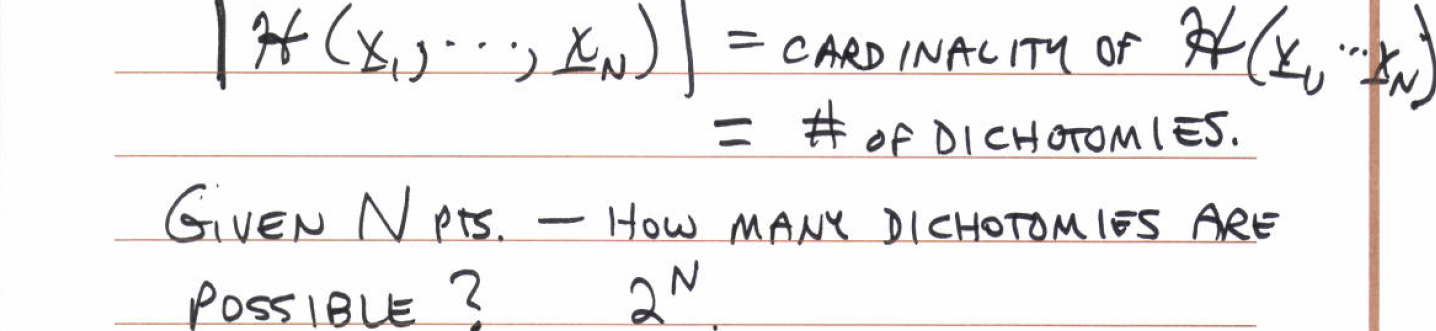 |H(x₁, ..., x_N)| = CARDINALITY OF H(x₁, ... x_N)
= # OF DICHOTOMIES.
GIVEN N PTS. — HOW MANY DICHOTOMIES ARE
POSSIBLE ? 2^N.